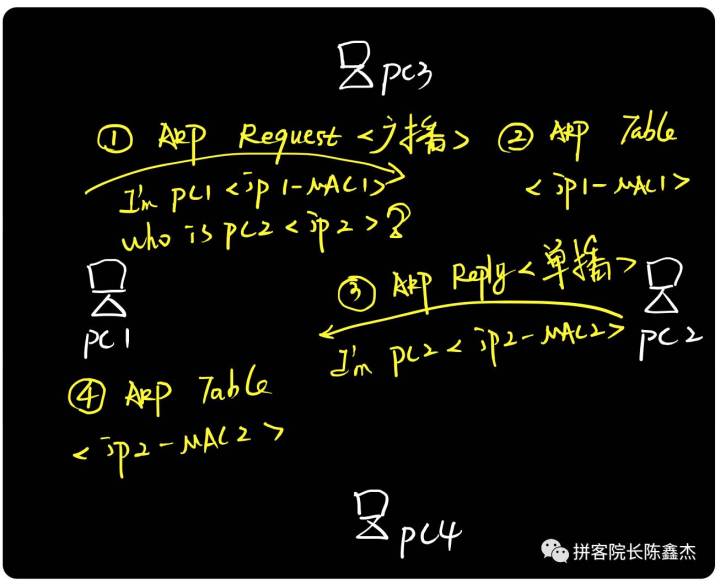 PC3
① ARP Request <广播>
I'm PC1 <ip1-MAC1>
who is PC2 <ip2>?
② ARP Table
<ip1-MAC1>
PC1
③ ARP Reply <单播>
I'm PC2 <ip2-MAC2>
PC2
④ ARP Table
<ip2-MAC2>
PC4
拼客院长陈鑫杰